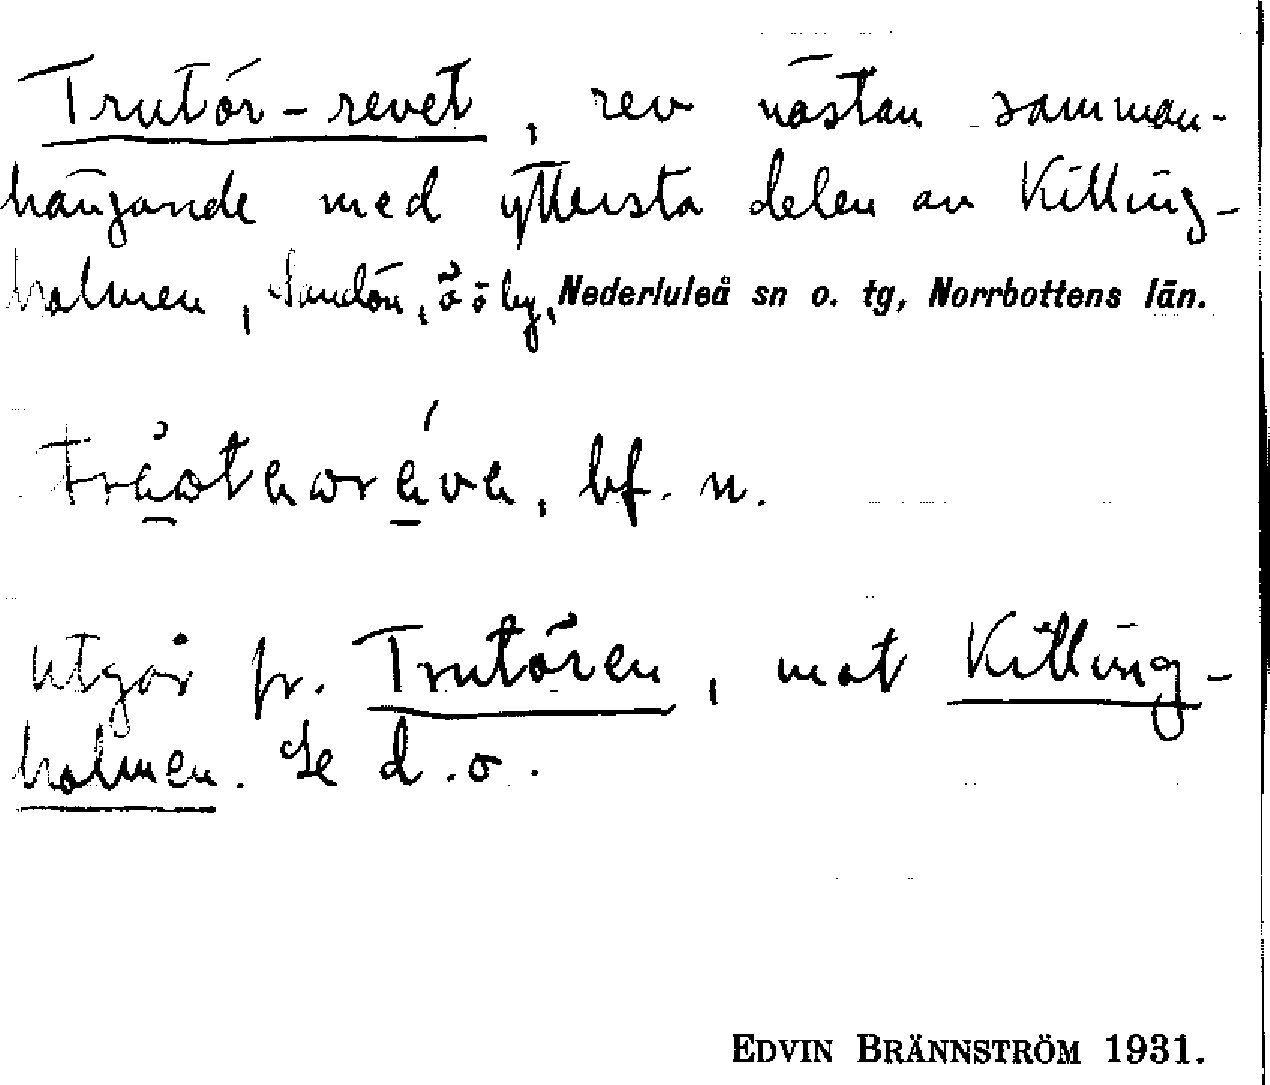 Trutör-revet, rev nästan samman-
hängande med yttersta delen av Killing-
holmen, Sandön, by, Nederluleå sn o. tg, Norrbottens län.
bf. n.
utgår fr. Trutören, mot Killing-
holmen. Se d. o.
EDVIN BRÄNNSTRÖM 1931.